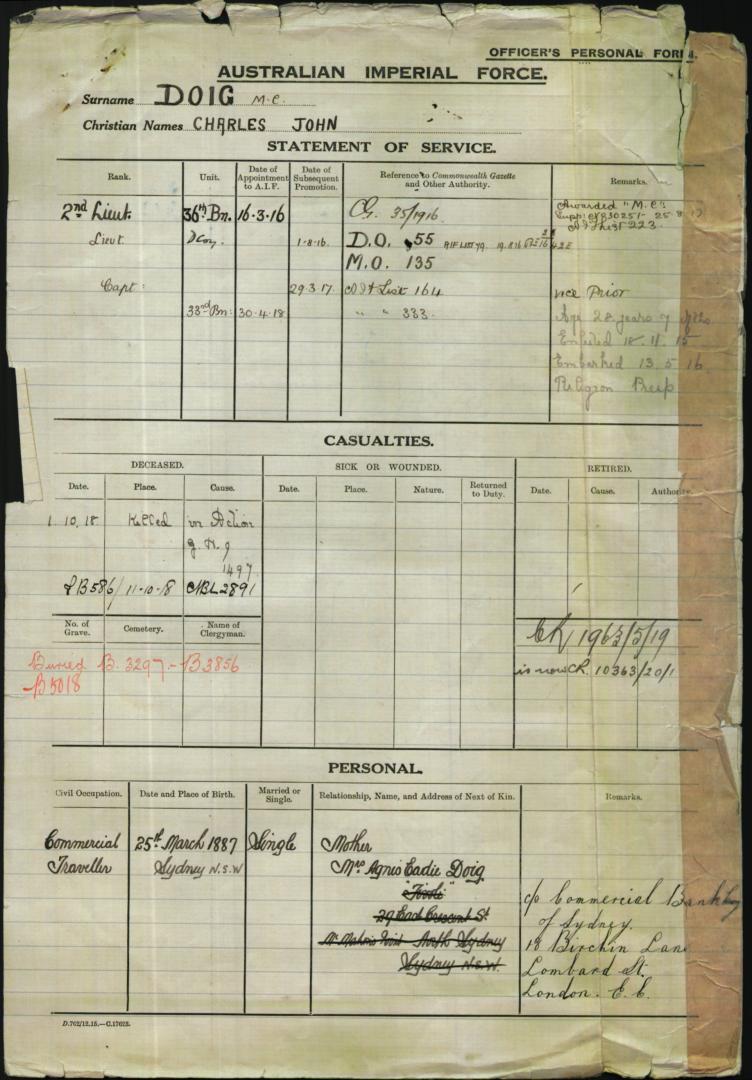 OFFICER'S PERSONAL FORM.
AUSTRALIAN IMPERIAL FORCE.
Surname DOIG M.C.
Christian Names CHARLES JOHN
STATEMENT OF SERVICE.
Rank. Unit. Date of Appointment to A.I.F. Date of Subsequent Promotion. Reference to Commonwealth Gazette and Other Authority. Remarks.
2nd Lieut. 36th Bn. 16-3-16 CG. 35/1916. Awarded "M.C."
25-8-17
223
Lieut. D Coy. 1-8-16. D.O. 55
M.O. 135
Capt: 29.3.17. List 164 vice Prior
33rd Bn: 30.4.18 " " 333. Age 28 years 7
Enlisted 18.11.15
Embarked 13.5.16
Religion Presp
CASUALTIES.
DECEASED. SICK OR WOUNDED. RETIRED.
Date. Place. Cause. Date. Place. Nature. Returned to Duty. Date. Cause. Authority
1.10.18 Killed in Action
1497
11-10-18 2891
No. of Grave. Cemetery. Name of Clergyman.
1963/5/19
Buried B. 3297 - B 3856
is now CR. 10363/20/1
- B 5018
PERSONAL.
Civil Occupation. Date and Place of Birth. Married or Single. Relationship, Name, and Address of Next of Kin. Remarks.
Commercial Traveller 25th March 1887 Sydney N.S.W Single Mother
Mrs Agnes Eadie Doig
"Tivoli"
29 East Crescent St
North Sydney
Sydney N.S.W.
c/o Commercial Banking
of Sydney.
18 Birchin Lane
Lombard St.
London. E.C.
D.762/12.15.—C.17625.